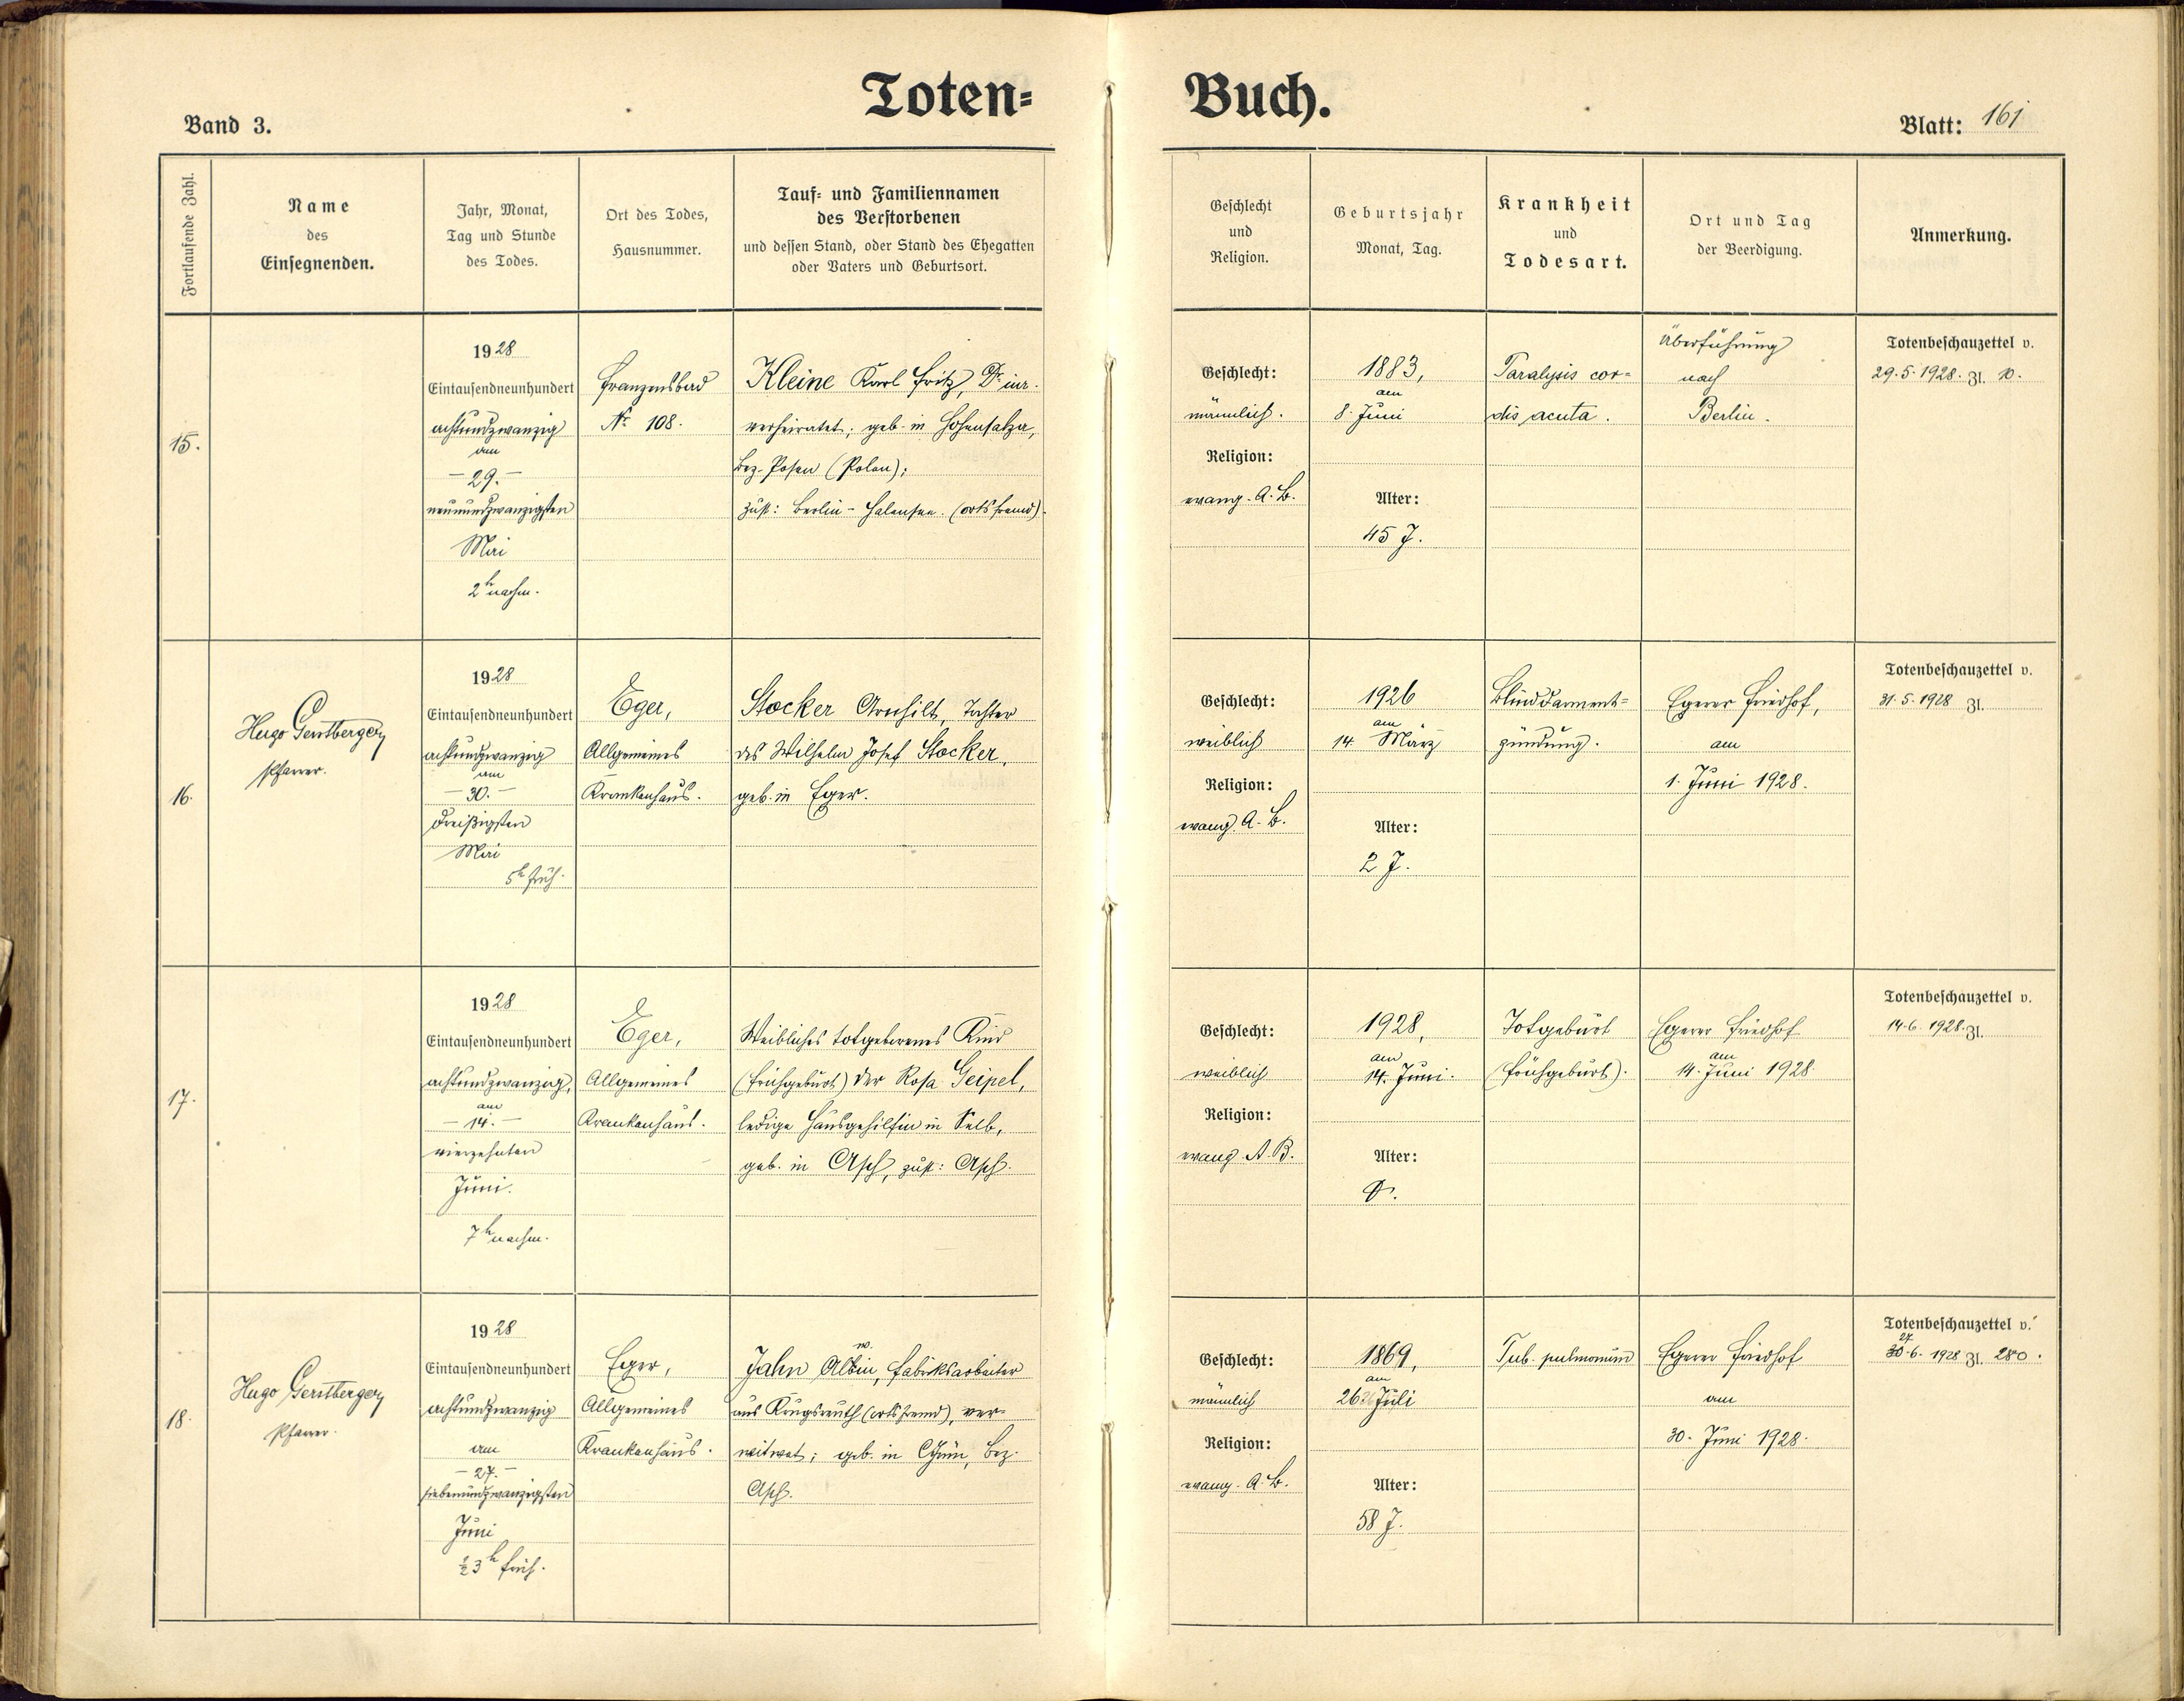 Toten= Buch.
Band 3.
Blatt: 161
Fortlaufende Zahl.
Name
des
Einsegnenden.
Jahr, Monat,
Tag und Stunde
des Todes.
Ort des Todes,
Hausnummer.
Tauf= und Familiennamen
des Verstorbenen
und dessen Stand, oder Stand des Ehegatten
oder Vaters und Geburtsort.
Geschlecht
und
Religion.
Geburtsjahr
Monat, Tag.
Krankheit
und
Todesart.
Ort und Tag
der Beerdigung.
Anmerkung.
15.
1928
Eintausendneunhundert
achtundzwanzig
am
– 29. –
neunundzwanzigsten
Mai
2h nachm.
Franzensbad
Nr. 108.
Kleine Karl Fritz, Dr. iur.
verheiratet; geb. in Hohensalza,
Bez. Posen (Polen);
zust: Berlin – Halensee. (ortsfremd).
Geschlecht:
männlich.
Religion:
evang. A. B.
1883,
am
8. Juni
Alter:
45 J.
Paralysis cor=
dis acuta.
Überführung
nach
Berlin.
Totenbeschauzettel v.
29.5.1928. Zl. 10.
16.
Hugo Gerstberger,
Pfarrer.
1928
Eintausendneunhundert
achtundzwanzig
am
– 30. –
dreißigsten
Mai
5h früh.
Eger,
Allgemeines
Krankenhaus.
Stocker Arnhilt, Tochter
des Wilhelm Josef Stocker,
geb. in Eger.
Geschlecht:
weiblich
Religion:
evang. A. B.
1926
am
14. März
Alter:
2 J.
Blinddarment=
zündung.
Egerer Friedhof,
am
1. Juni 1928.
Totenbeschauzettel v.
31.5.1928 Zl.
17.
1928
Eintausendneunhundert
achtundzwanzig,
am
– 14. –
vierzehnten
Juni.
7h nachm.
Eger,
Allgemeines
Krankenhaus.
Weibliches totgeborenes Kind
(Frühgeburt) der Rosa Geipel,
ledige Hausgehilfin in Selb,
geb. in Asch, zust: Asch.
Geschlecht:
weiblich
Religion:
evang. A. B.
1928,
am
14. Juni.
Alter:
Totgeburt
(Frühgeburt).
Egerer Friedhof
am
14. Juni 1928
Totenbeschauzettel v.
14.6.1928. Zl.
18.
Hugo Gerstberger,
Pfarrer.
1928
Eintausendneunhundert
achtundzwanzig
am
– 27. –
siebenundzwanzigsten
Juni
½3h früh.
Eger,
Allgemeines
Krankenhaus.
w.
Jahn Albin, Fabriksarbeiter
aus Krugsreuth (ortsfremd), ver=
witwet; geb. in Grün, Bez.
Asch.
Geschlecht:
männlich
Religion:
evang. A. B.
1869,
am
26. Juli
Alter:
58 J.
Tub. pulmonum
Egerer Friedhof
am
30. Juni 1928.
Totenbeschauzettel v.
27
30.6.1928 Zl. 280.